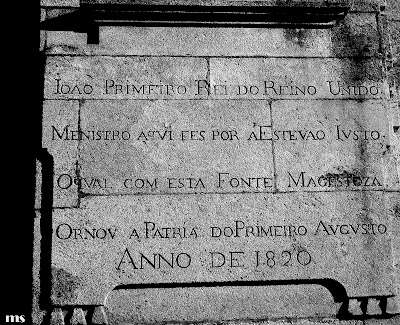 IOAÕ PRIMEIRO REI DO REINO UNIDO,
MENISTRO AQVI FES POR A'ESTEVAÕ IVSTO.
OQVAL COM ESTA FONTE MAGESTOZA
ORNOV A PATRIA DO PRIMEIRO AVGVSTO
ANNO DE 1820
ms